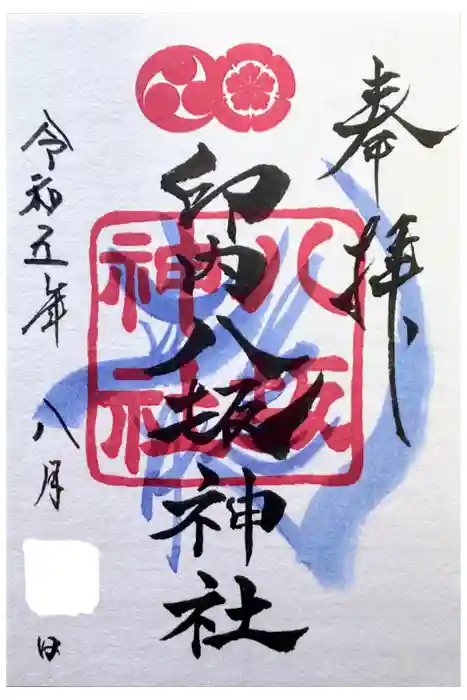 奉拝
印内八坂神社
八坂
神社
令和五年八月
日